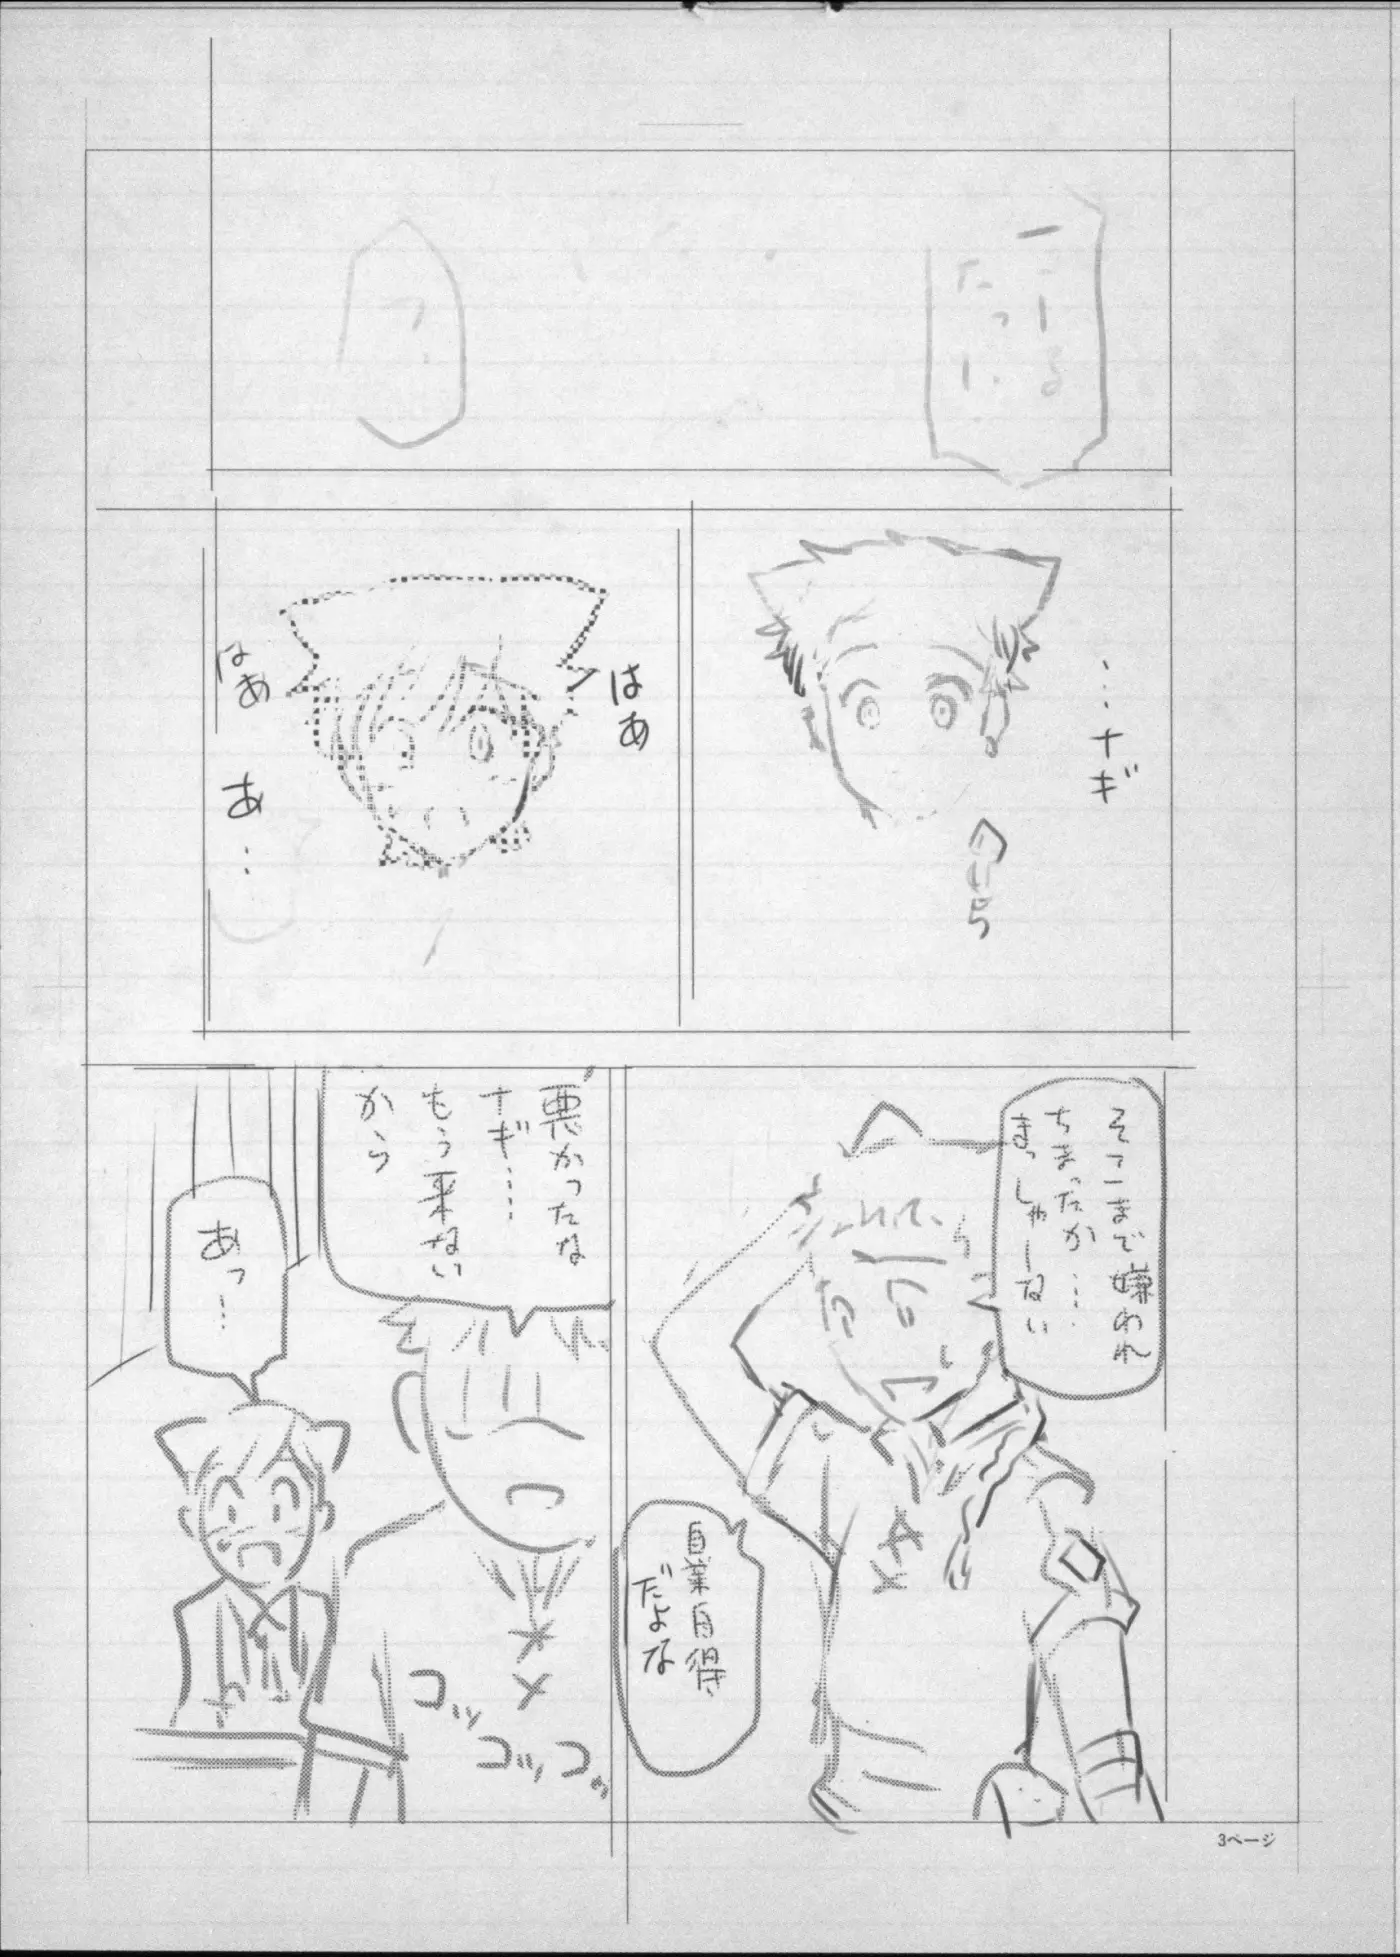 …ナギ
はあ
はあ
あ…
そこまで嫌われ
ちまったか…
まっしゃーない
自業自得
だよな
悪かったな
ナギ……
もう来ない
から
あっ…
コッ
コッコッ
3ページ